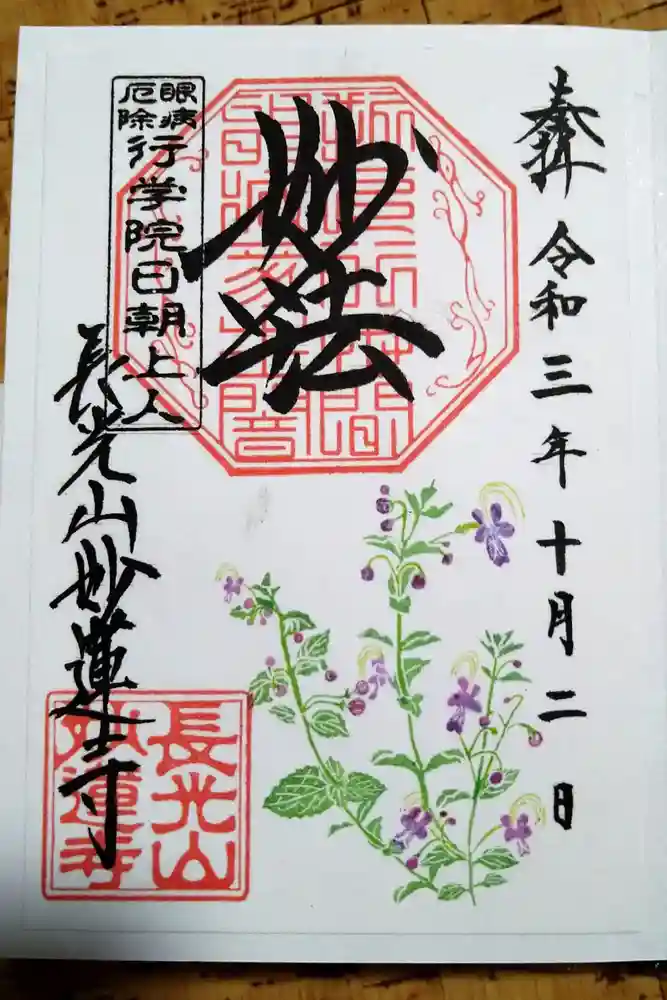 奉拝 令和三年十月二日
妙法
眼病
厄除
行学院日朝上人
長光山妙蓮寺
長光山
妙蓮寺